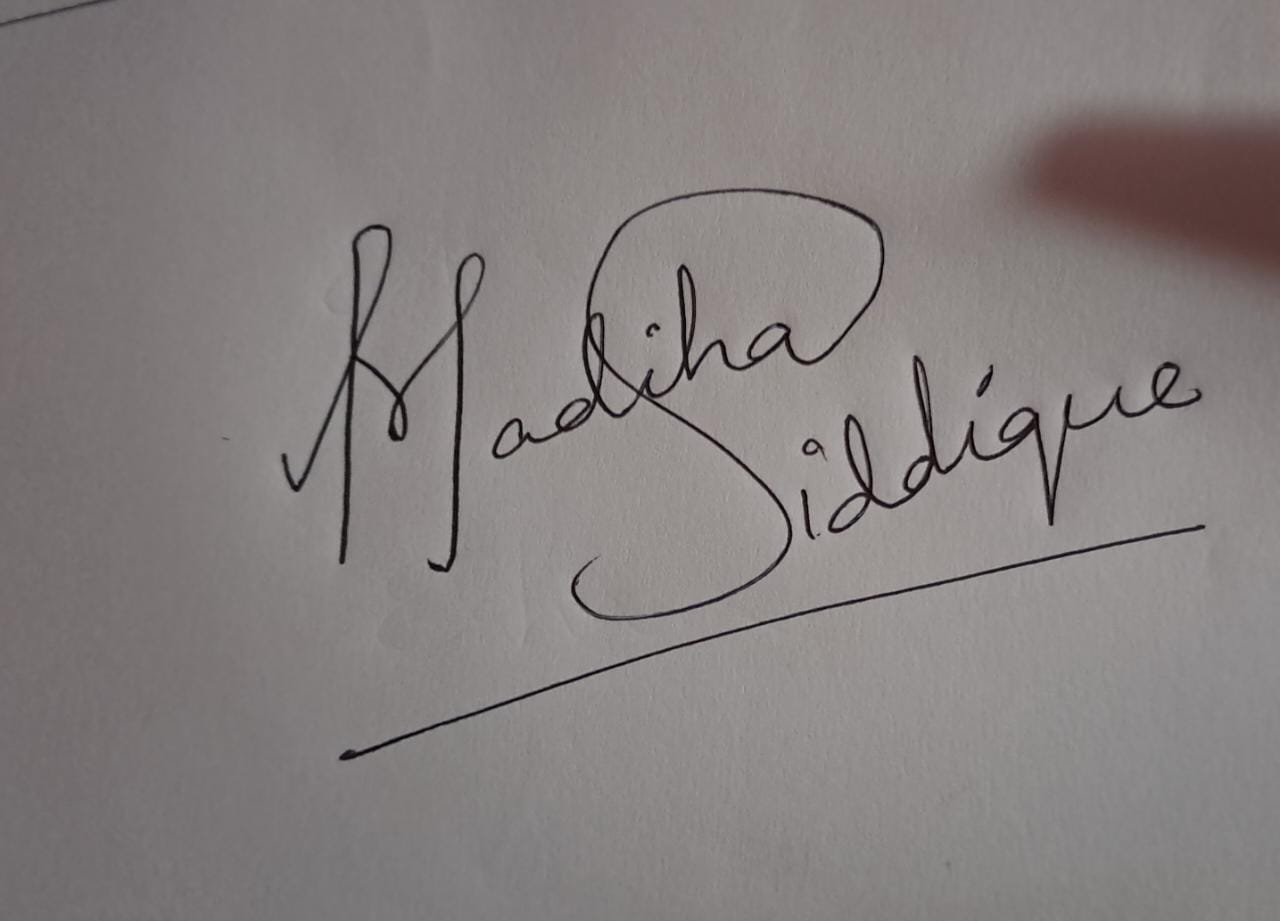 Madiha
Siddique